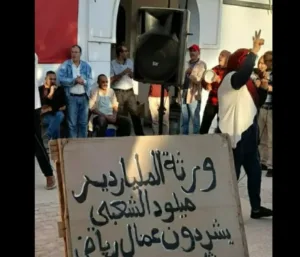 ورثة الملياردير
ميلود الشعبي
يشردون عمال رياض